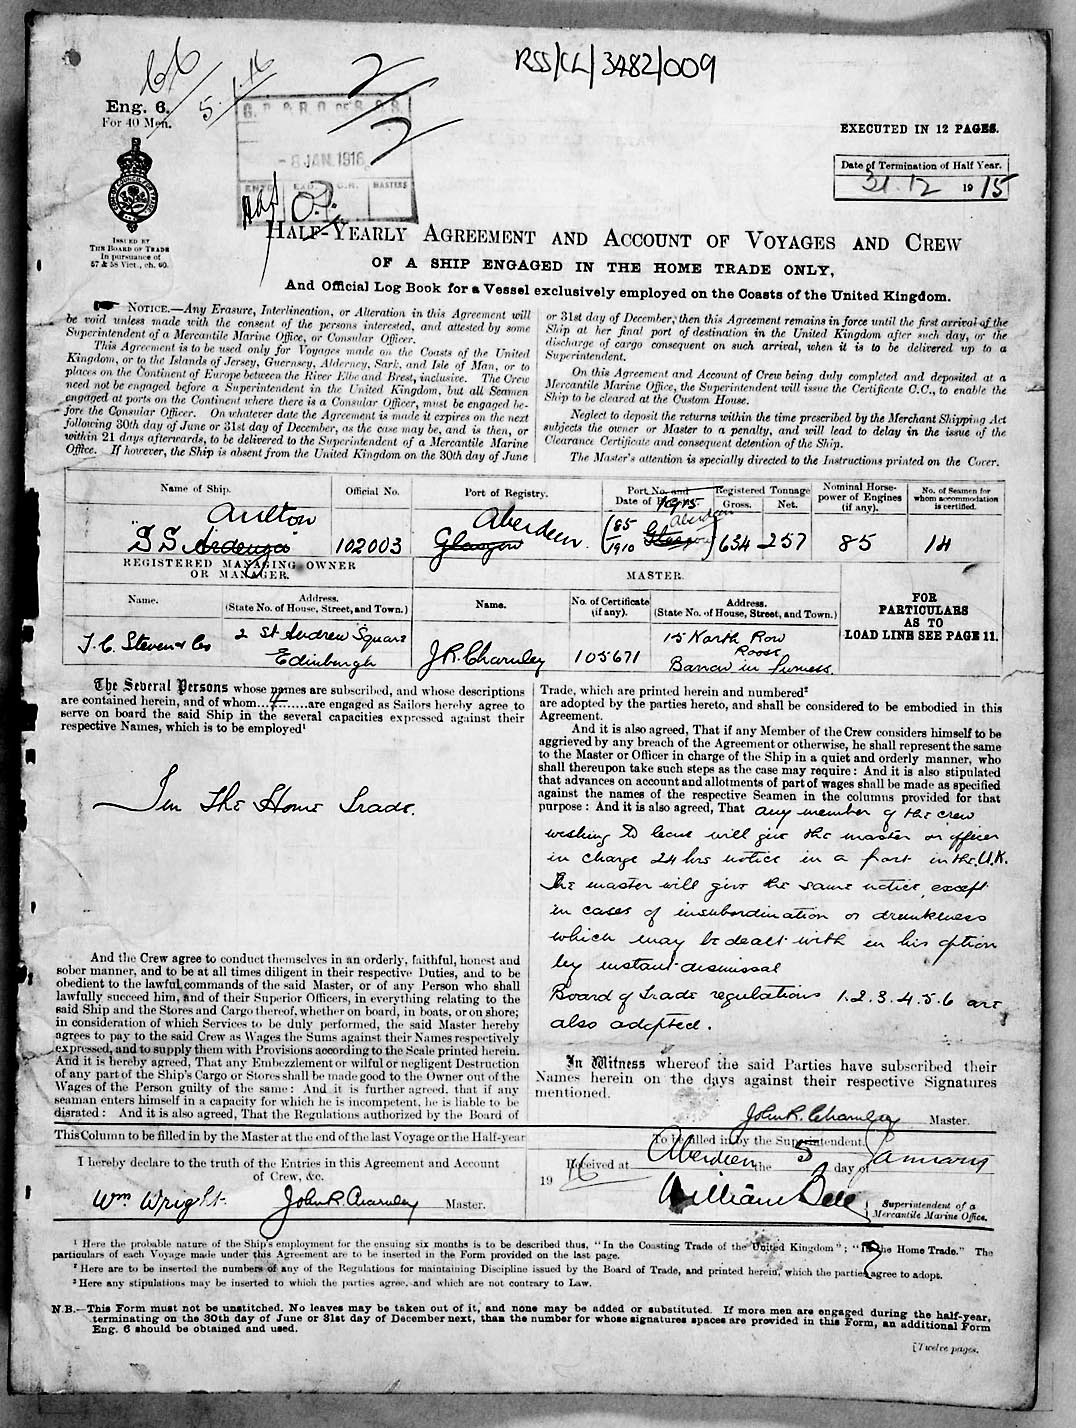 RSS/CL/3482/009
66
5.1.16
2/2
Eng. 6.
For 40 Men.
EXECUTED IN 12 PAGES.
Date of Termination of Half Year.
31.12 1915
- 8 JAN. 1916
MASTERS
ISSUED BY
THE BOARD OF TRADE
In pursuance of
57 & 58 Vict., ch. 60.
HALF-YEARLY AGREEMENT AND ACCOUNT OF VOYAGES AND CREW
OF A SHIP ENGAGED IN THE HOME TRADE ONLY,
And Official Log Book for a Vessel exclusively employed on the Coasts of the United Kingdom.
NOTICE.—Any Erasure, Interlineation, or Alteration in this Agreement will
be void unless made with the consent of the persons interested, and attested by some
Superintendent of a Mercantile Marine Office, or Consular Officer.
This Agreement is to be used only for Voyages made on the Coasts of the United
Kingdom, or to the Islands of Jersey, Guernsey, Alderney, Sark, and Isle of Man, or to
places on the Continent of Europe between the River Elbe and Brest, inclusive. The Crew
need not be engaged before a Superintendent in the United Kingdom, but all Seamen
engaged at ports on the Continent where there is a Consular Officer, must be engaged be-
fore the Consular Officer. On whatever date the Agreement is made it expires on the next
following 30th day of June or 31st day of December, as the case may be, and is then, or
within 21 days afterwards, to be delivered to the Superintendent of a Mercantile Marine
Office. If however, the Ship is absent from the United Kingdom on the 30th day of June
or 31st day of December, then this Agreement remains in force until the first arrival of the
Ship at her final port of destination in the United Kingdom after such day, or the
discharge of cargo consequent on such arrival, when it is to be delivered up to a
Superintendent.
On this Agreement and Account of Crew being duly completed and deposited at a
Mercantile Marine Office, the Superintendent will issue the Certificate C.C., to enable the
Ship to be cleared at the Custom House.
Neglect to deposit the returns within the time prescribed by the Merchant Shipping Act
subjects the owner or Master to a penalty, and will lead to delay in the issue of the
Clearance Certificate and consequent detention of the Ship.
The Master's attention is specially directed to the Instructions printed on the Cover.
Name of Ship. Official No. Port of Registry. Port No. and Date of Registered Tonnage Gross. Net. Nominal Horse-power of Engines (if any). No. of Seamen for whom accommodation is certified.
Aulton Aberdeen 1915 Aberdeen
"SS Ardenza" 102003 Glasgow 85/1910 Glasgow 634 257 85 14
REGISTERED MANAGING OWNER
OR MANAGER.
MASTER.
Name. Address. (State No. of House, Street, and Town.) Name. No. of Certificate (if any). Address. (State No. of House, Street, and Town.)
FOR
PARTICULARS
AS TO
LOAD LINE SEE PAGE 11.
J. C. Steven & Co 2 St Andrew Square Edinburgh
J R. Charnley 105671 15 North Row Roose Barrow in Furness.
The Several Persons whose names are subscribed, and whose descriptions
are contained herein, and of whom are engaged as Sailors hereby agree to
serve on board the said Ship in the several capacities expressed against their
respective Names, which is to be employed¹
In The Home Trade.
And the Crew agree to conduct themselves in an orderly, faithful, honest and
sober manner, and to be at all times diligent in their respective Duties, and to be
obedient to the lawful commands of the said Master, or of any Person who shall
lawfully succeed him, and of their Superior Officers, in everything relating to the
said Ship and the Stores and Cargo thereof, whether on board, in boats, or on shore;
in consideration of which Services to be duly performed, the said Master hereby
agrees to pay to the said Crew as Wages the Sums against their Names respectively
expressed, and to supply them with Provisions according to the Scale printed herein.
And it is hereby agreed, That any Embezzlement or wilful or negligent Destruction
of any part of the Ship's Cargo or Stores shall be made good to the Owner out of the
Wages of the Person guilty of the same: And it is further agreed, that if any
seaman enters himself in a capacity for which he is incompetent, he is liable to be
disrated: And it is also agreed, That the Regulations authorized by the Board of
Trade, which are printed herein and numbered²
are adopted by the parties hereto, and shall be considered to be embodied in this
Agreement.
And it is also agreed, That if any Member of the Crew considers himself to be
aggrieved by any breach of the Agreement or otherwise, he shall represent the same
to the Master or Officer in charge of the Ship in a quiet and orderly manner, who
shall thereupon take such steps as the case may require: And it is also stipulated
that advances on account and allotments of part of wages shall be made as specified
against the names of the respective Seamen in the columns provided for that
purpose: And it is also agreed, That any member of the crew
wishing to leave will give the master or officer
in charge 24 hrs notice in a port in the U.K.
The master will give the same notice except
in cases of insubordination or drunkeness
which may be dealt with in his option
by instant dismissal
Board of Trade regulations 1.2.3.4.5.6 are
also adopted.
In Witness whereof the said Parties have subscribed their
Names herein on the days against their respective Signatures
mentioned.
John R. Charnley Master.
This Column to be filled in by the Master at the end of the last Voyage or the Half-year
I hereby declare to the truth of the Entries in this Agreement and Account
of Crew, &c.
Wm Wright John R. Charnley Master.
To be filled in by the Superintendent.
Received at Aberdeen the 5 day of January
1916
William Bell Superintendent of a Mercantile Marine Office.
¹ Here the probable nature of the Ship's employment for the ensuing six months is to be described thus, "In the Coasting Trade of the United Kingdom"; "In the Home Trade." The
particulars of each Voyage made under this Agreement are to be inserted in the Form provided on the last page.
² Here are to be inserted the numbers of any of the Regulations for maintaining Discipline issued by the Board of Trade, and printed herein, which the parties agree to adopt.
³ Here any stipulations may be inserted to which the parties agree, and which are not contrary to Law.
N.B.—This Form must not be unstitched. No leaves may be taken out of it, and none may be added or substituted. If more men are engaged during the half-year,
terminating on the 30th day of June or 31st day of December next, than the number for whose signatures spaces are provided in this Form, an additional Form
Eng. 6 should be obtained and used.
[Twelve pages.